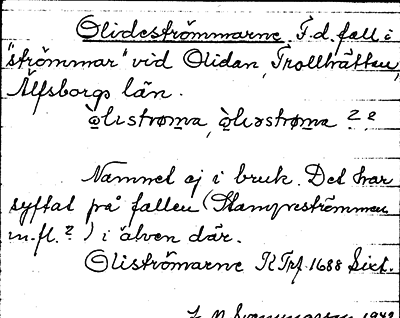 Olideströmmarne. F.d. fall i
"strömmar" vid Olidan, Trollhättan,
Älfsborgs län.
o̤̊lıstrøma, o̤̊lıəstrøma ? e
Namnet ej i bruk. Det har
syftat på fallen (Stampeströmmen
m.fl.?) i älven där.
Oliströmarne KTrf 1688 Sict.
1942